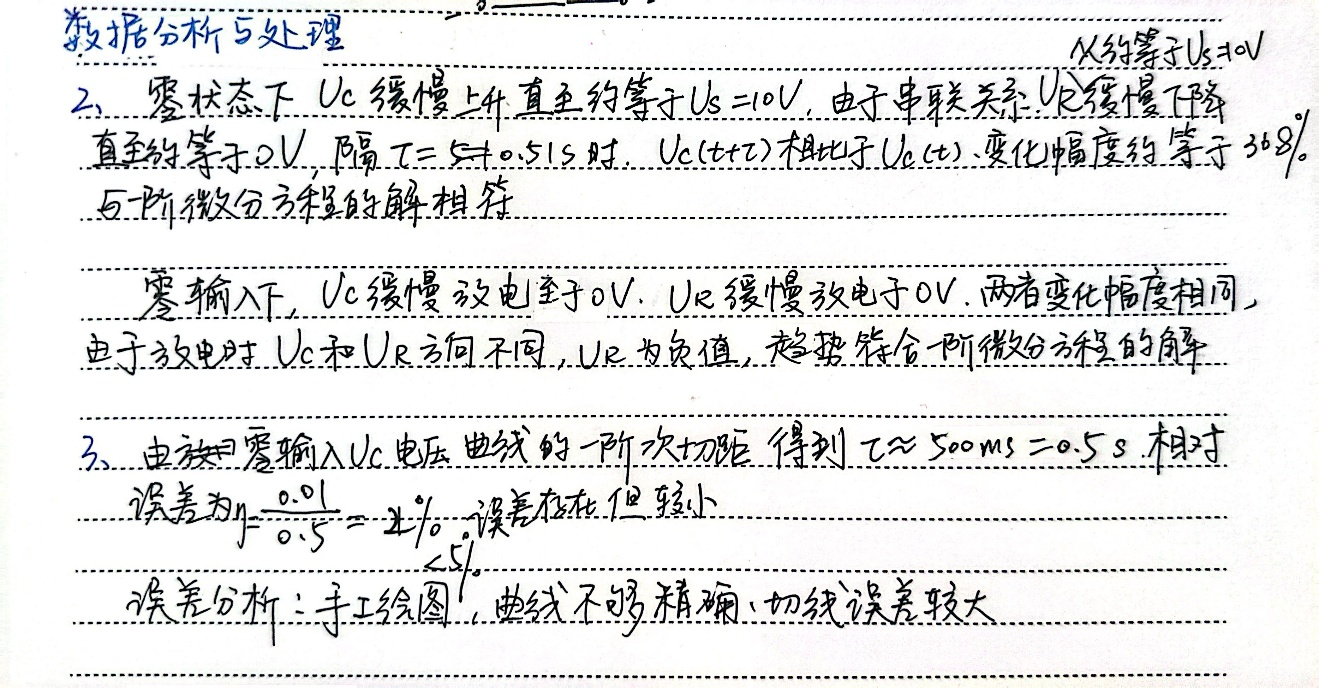 数据分析与处理
从约等于Us=10V
2、零状态下 Uc缓慢上升直至约等于Us=10V,由于串联关系.UR缓慢下降
直至约等于0V,隔τ=0.51s时. Uc(t+τ)相比于Uc(t).变化幅度约等于36.8%
与一阶微分方程的解相符
零输入下,Uc缓慢放电至于0V. UR缓慢放电于0V.两者变化幅度相同,
由于放电时Uc和UR方向不同,UR为负值,趋势符合一阶微分方程的解
3、由零输入Uc电压曲线的一阶次切距 得到τ≈500ms=0.5s.相对
误差为η=0.01/0.5=2%<5%.误差存在但较小
误差分析:手工绘图,曲线不够精确、切线误差较大